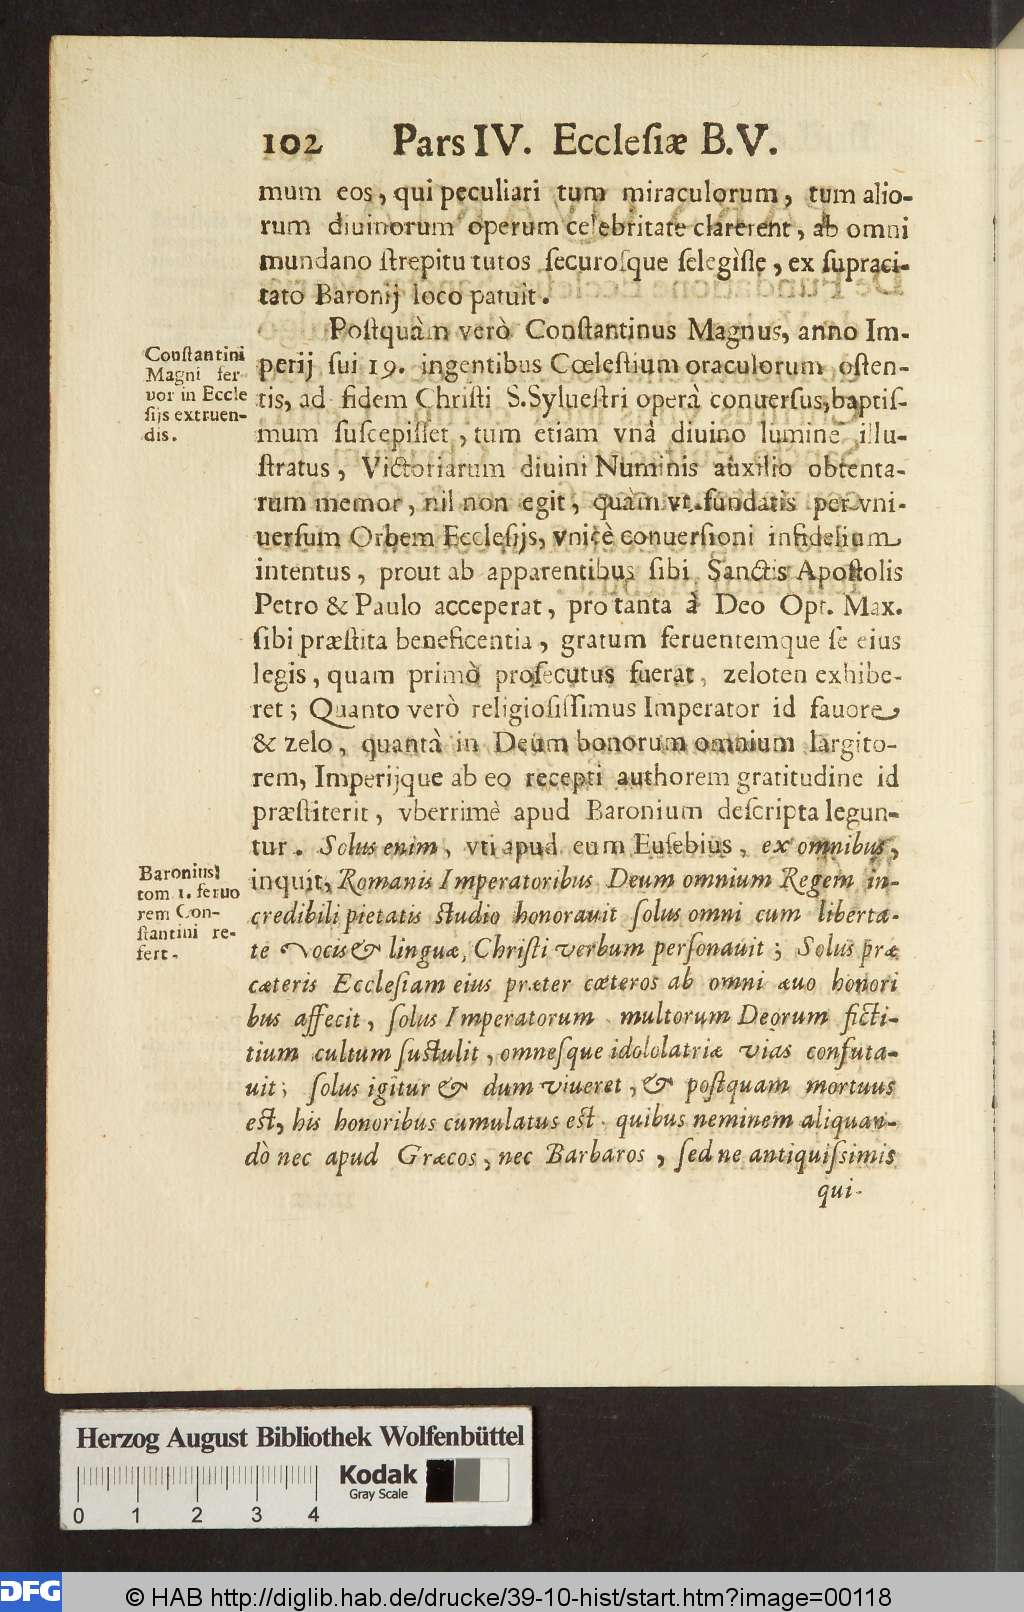 102 Pars IV. Ecclesiæ B.V.
mum eos, qui peculiari tum miraculorum, tum alio-
rum diuinorum operum celebritate clarerent, ab omni
mundano ſtrepitu tutos ſecuroſque ſelegiſſe, ex ſupraci-
tato Baronij loco patuit.
Poſtquàm verò Conſtantinus Magnus, anno Im-
perij ſui 19. ingentibus Cœleſtium oraculorum oſten-
tis, ad fidem Chriſti S. Sylueſtri operà conuerſus, baptiſ-
mum ſuſcepiſſet, tum etiam vnà diuino lumine illu-
ſtratus, Victoriarum diuini Numinis auxilio obtenta-
rum memor, nil non egit, quàm vt fundatis per vni-
uerſum Orbem Eccleſijs, vnicè conuerſioni infidelium
intentus, prout ab apparentibus ſibi Sanctis Apoſtolis
Petro & Paulo acceperat, pro tanta à Deo Opt. Max.
ſibi præſtita beneficentia, gratum feruentemque ſe eius
legis, quam primò proſecutus fuerat, zeloten exhibe-
ret; Quanto verò religioſiſſimus Imperator id fauore
& zelo, quantà in Deum bonorum omnium largito-
rem, Imperijque ab eo recepti authorem gratitudine id
præſtiterit, vberrimè apud Baronium deſcripta legun-
tur. Solus enim, vti apud eum Euſebius, ex omnibus,
inquit, Romanis Imperatoribus Deum omnium Regem in-
credibili pietatis ſtudio honorauit ſolus omni cum liberta-
te vocis & linguæ, Chriſti verbum perſonauit; Solus præ
cæteris Eccleſiam eius præter cæteros ab omni æuo honori
bus affecit, ſolus Imperatorum multorum Deorum ficti-
tium cultum ſuſtulit, omneſque idololatriæ vias confuta-
uit; ſolus igitur & dum viueret, & poſtquam mortuus
eſt, his honoribus cumulatus eſt. quibus neminem aliquan-
dò nec apud Græcos, nec Barbaros, ſed ne antiquiſsimis
qui-
Conſtantini
Magni fer
uor in Eccle
ſijs extruen-
dis.
Baronius
tom 1. feruo
rem Con-
ſtantini re-
fert.
Herzog August Bibliothek Wolfenbüttel
Kodak
Gray Scale
0 1 2 3 4
DFG © HAB http://diglib.hab.de/drucke/39-10-hist/start.htm?image=00118